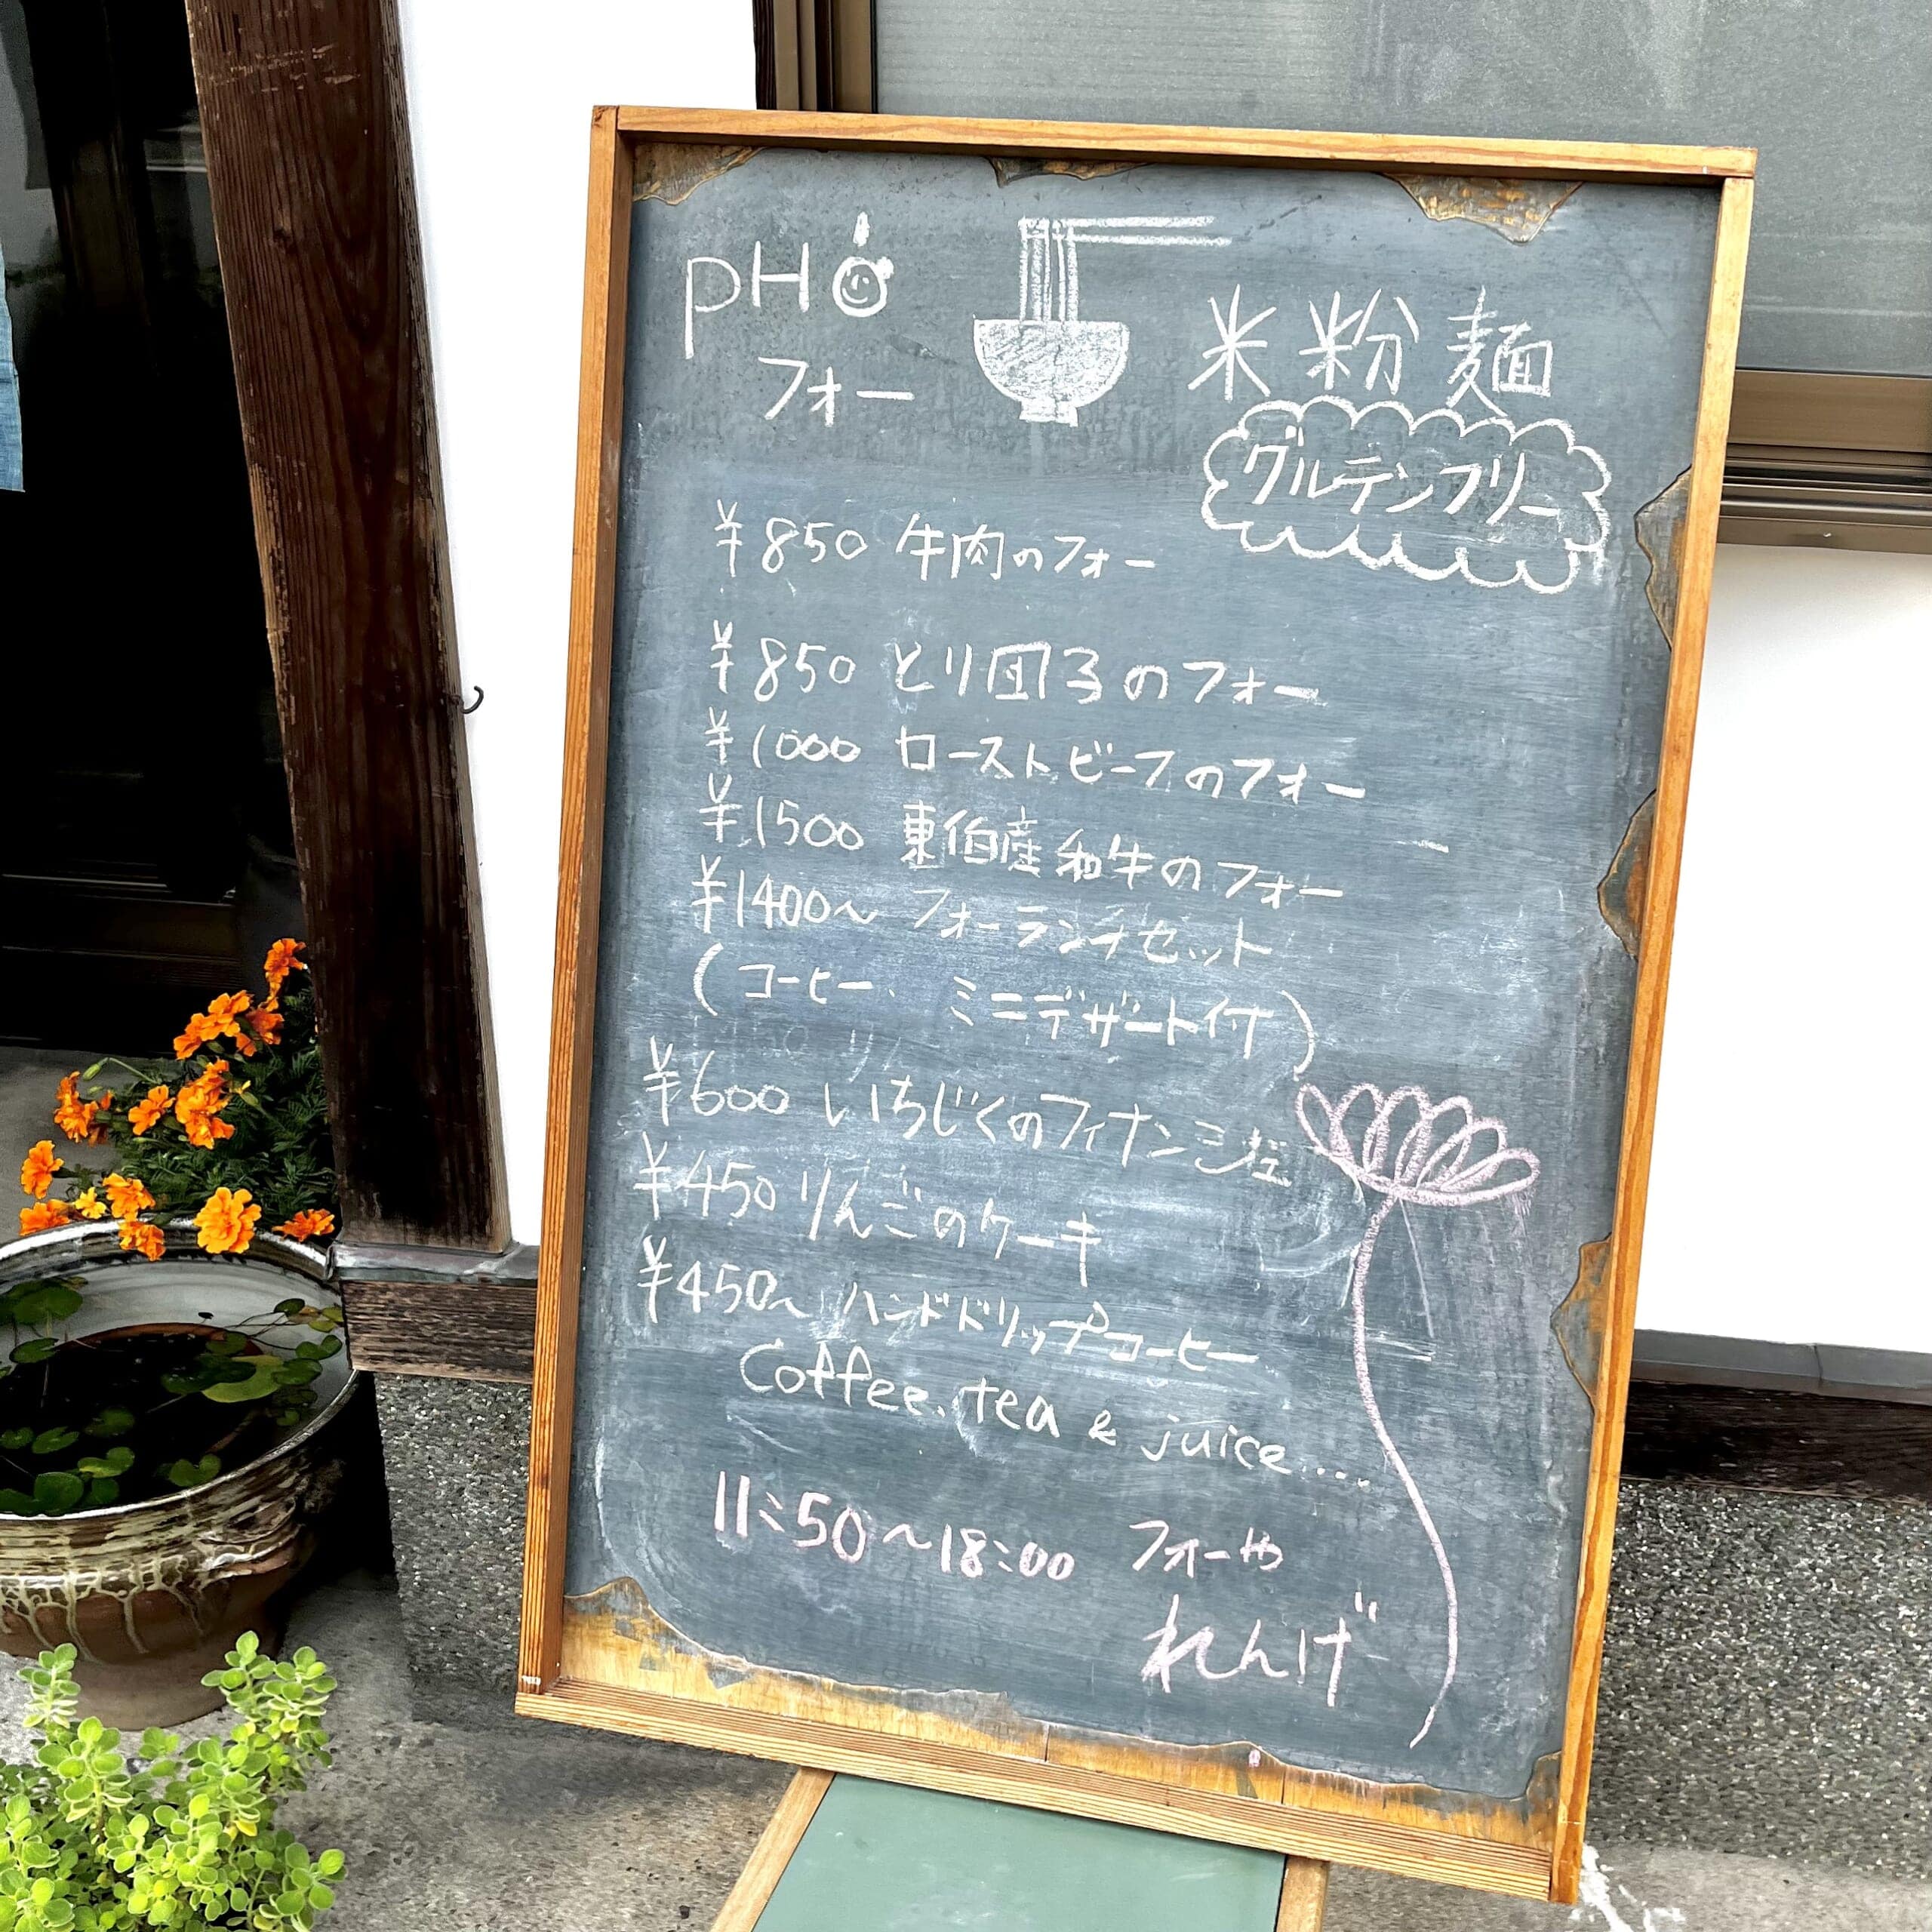 PHỞ
フォー
米粉麺
グルテンフリー
¥850 牛肉のフォー
¥850 とり団子のフォー
¥1000 ローストビーフのフォー
¥1500 東伯産和牛のフォー
¥1400〜 フォーランチセット
(コーヒー、ミニデザート付)
¥600 いちじくのフィナンシェ
¥450 りんごのケーキ
¥450〜 ハンドドリップコーヒー
Coffee, tea & juice ...
11:50〜18:00 フォーや
れんげ